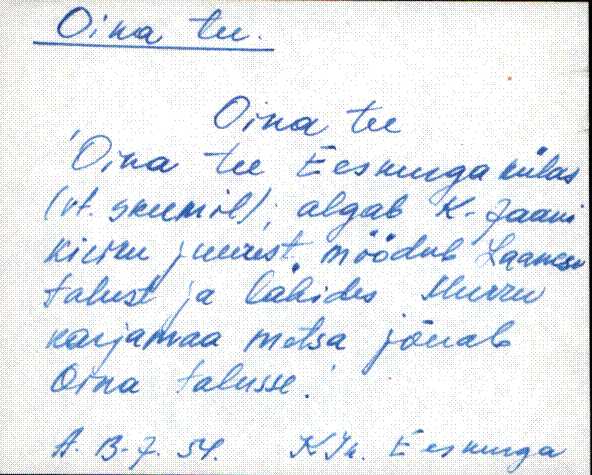 Oina tee.
Oina tee
'Oina tee Eesnurga külas
(vt. skeemil), algab K-Jaani
kiriku juurest, möödub Laanesu
talust ja läbides Murru
karjamaa metsa jõuab
Oina talusse.'
A. B-7. 54. KJn. Eesnurga